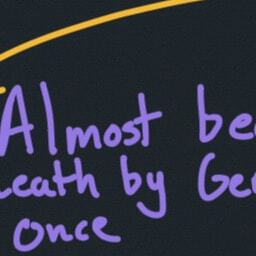 Almost be
death by Ge
once